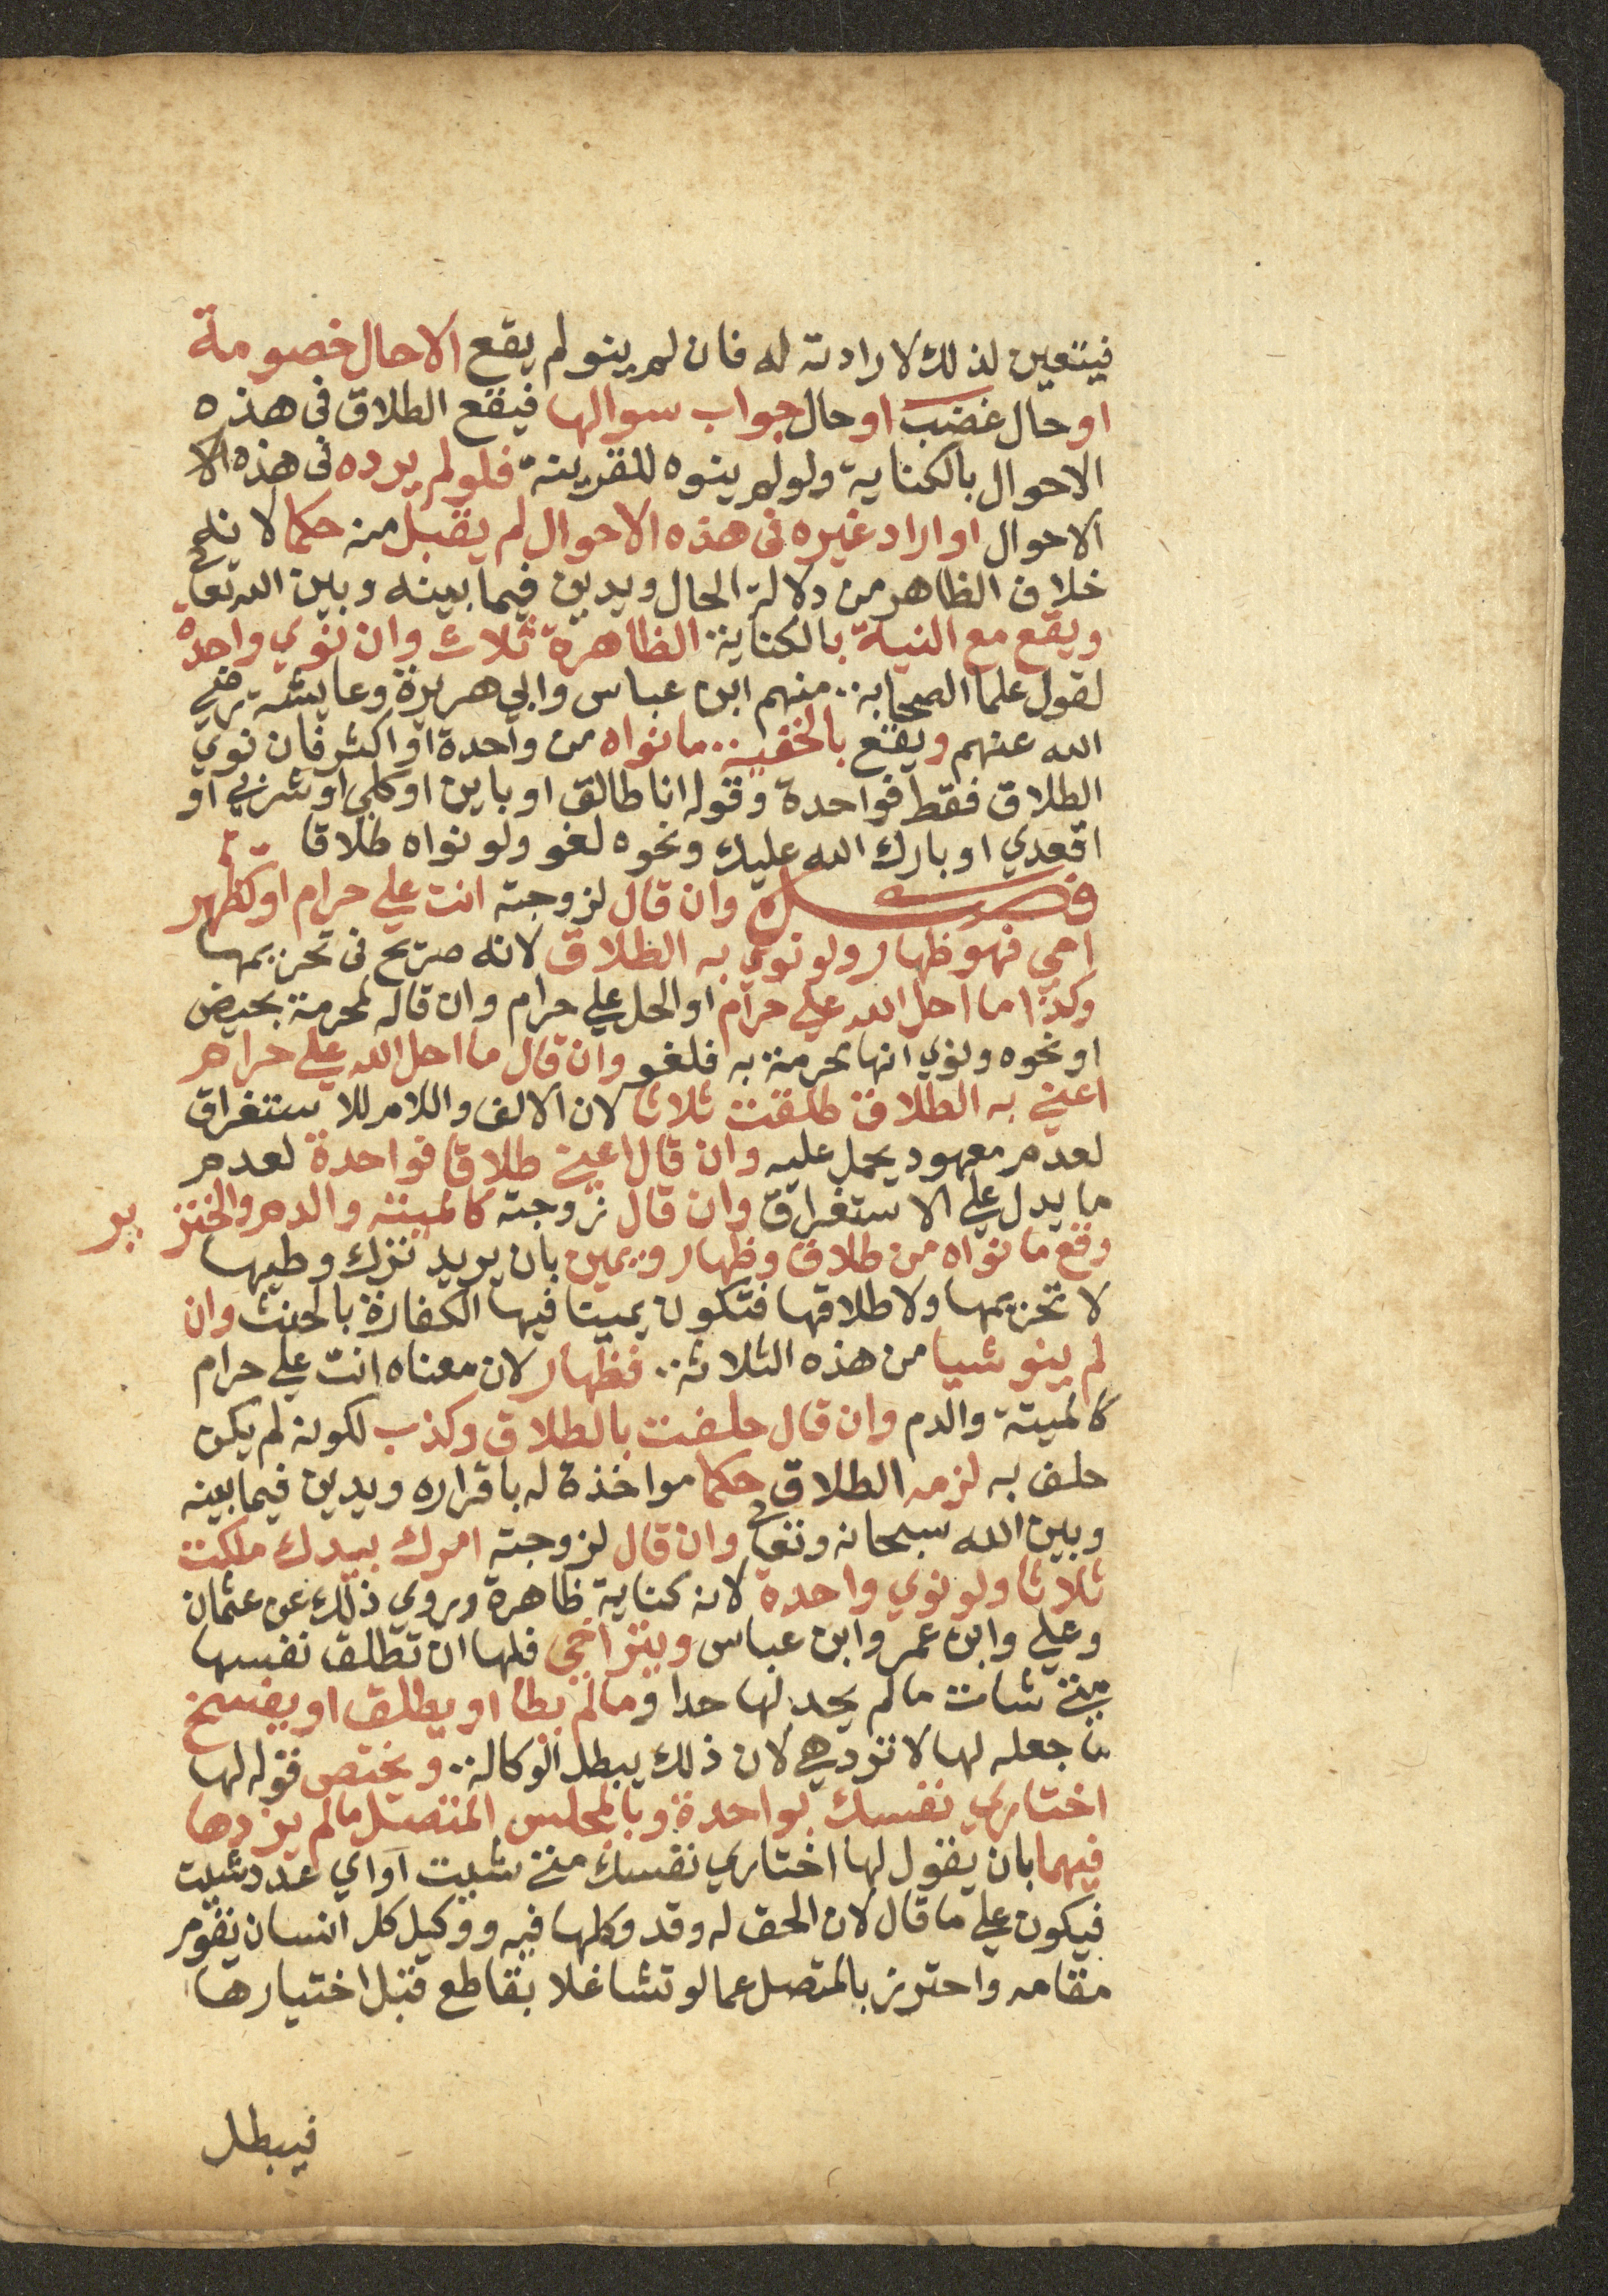 فيتعين لذلك لارادته له فان لم ينو لم يقع الا حال خصومة
او حال غضب او حال جواب سوالها فيقع الطلاق في هذه
الاحوال بالكناية ولو لم ينوه للقرينة فلو لم يرده في هذه الا
الاحوال او اراد غيره في هذه الاحوال لم يقبل منه حكما لانه
خلاف الظاهر من دلالة الحال ويدين فيما بينه وبين الله تعالى
ويقع مع النية بالكناية الظاهرة ثلاث وان نوي واحدة
لقول علما الصحابة منهم ابن عباس وابي هريرة وعايشة رضي
الله عنهم ويقع بالخفية ما نواه من واحدة او اكثر فان نوي
الطلاق فقط فواحدة وقوله انا طالق او باين او كلي او شربي او
اقعدي او بارك الله عليك ونحوه لغو ولو نواه طلاقا
فصل وان قال لزوجته انت علي حرام او كظهر
امي فهو ظهار ولو نوي به الطلاق لانه صريح في تحريمها
وكذا ما احل الله علي حرام او الحل علي حرام وان قاله لمحرمة بحيض
او نحوه ونوي انها محرمة به فلغو وان قال ما احل الله علي حرام
اعني به الطلاق طلقت ثلاثا لان الالف واللام للاستغراق
لعدم معهود يحمل عليه وان قال اعني طلاقا فواحدة لعدم
ما يدل علي الاستغراق وان قال زوجته كالميتة والدم والخنزير
وقع ما نواه من طلاق وظهار ويمين بان يريد ترك وطيها
لا تحريمها ولا طلاقها فتكون يمينا فيها الكفارة بالحنث وان
لم ينو شيا من هذه الثلاثة فظهار لان معناه انت علي حرام
كالميتة والدم وان قال حلفت بالطلاق وكذب لكونه لم يكن
حلف به لزمه الطلاق حكما مواخذة له باقراره ويدين فيما بينه
وبين الله سبحانه وتعالى وان قال لزوجته امرك بيدك ملكت
ثلاثا ولو نوي واحدة لانه كناية ظاهرة وروي ذلك عن عثمان
وعلي وابن عمر وابن عباس ويتراخي فلها ان تطلق نفسها
متي شات ما لم يحد لها حدا وما لم يطا او يطلق او يفسخ
ما جعله لها او ترد هي لان ذلك يبطل الوكالة ويختص قوله لها
اختاري نفسك بواحدة وبالمجلس المتصل ما لم يزدها
فيهما بان يقول لها اختاري نفسك متي شيت او اي عدد شيت
فيكون علي ما قال لان الحق له وقد وكلها فيه ووكيل كل انسان يقوم
مقامه واحترز بالمتصل عما لو تشاغلا بقاطع قبل اختيارها
فيبطل